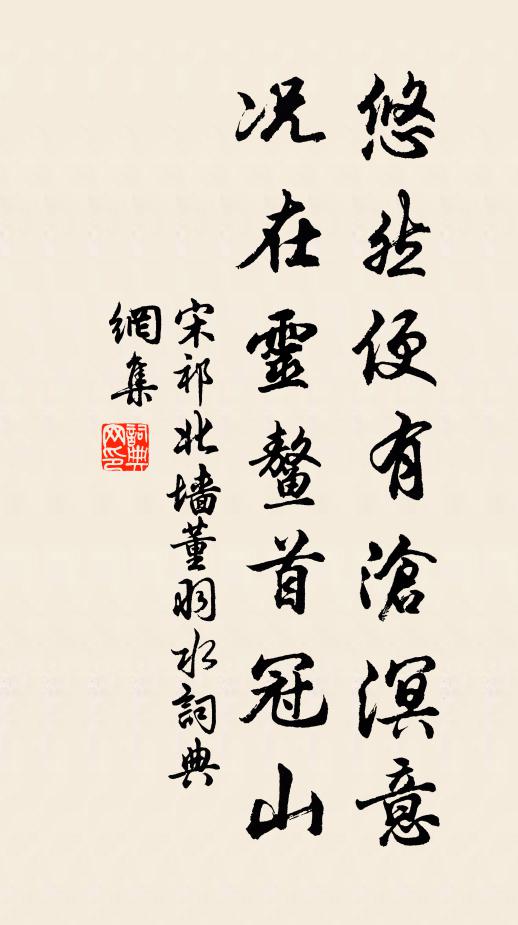 悠然便有滄溟意
況在靈鼇首冠山
宋祁北墙董羽水詞典
網集
詞典
网印